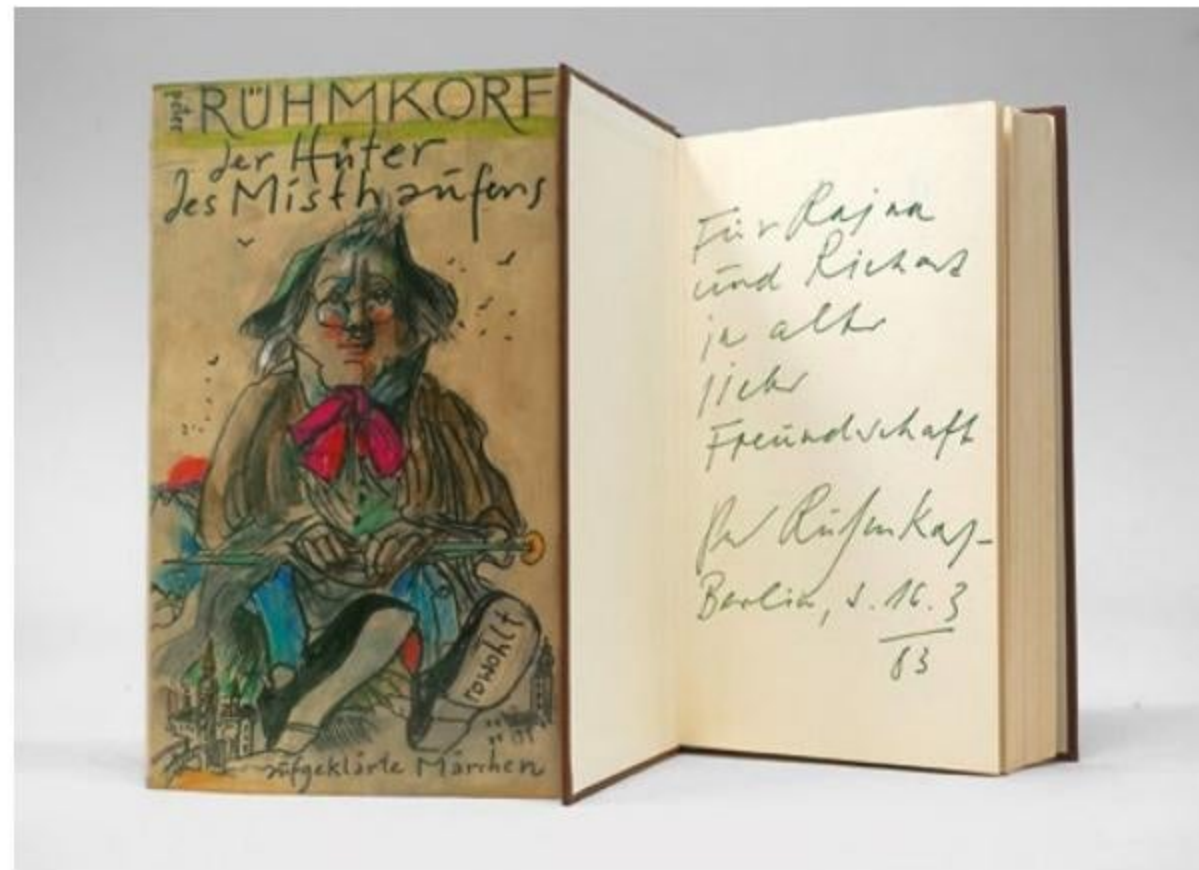 Peter
RÜHMKORF
der Hüter
des Misthaufens
rowohlt
aufgeklärte Märchen
Für Rajna
und Richard
in alter
lieber
Freundschaft
Peter Rühmkorf
Berlin, d. 16.3
83